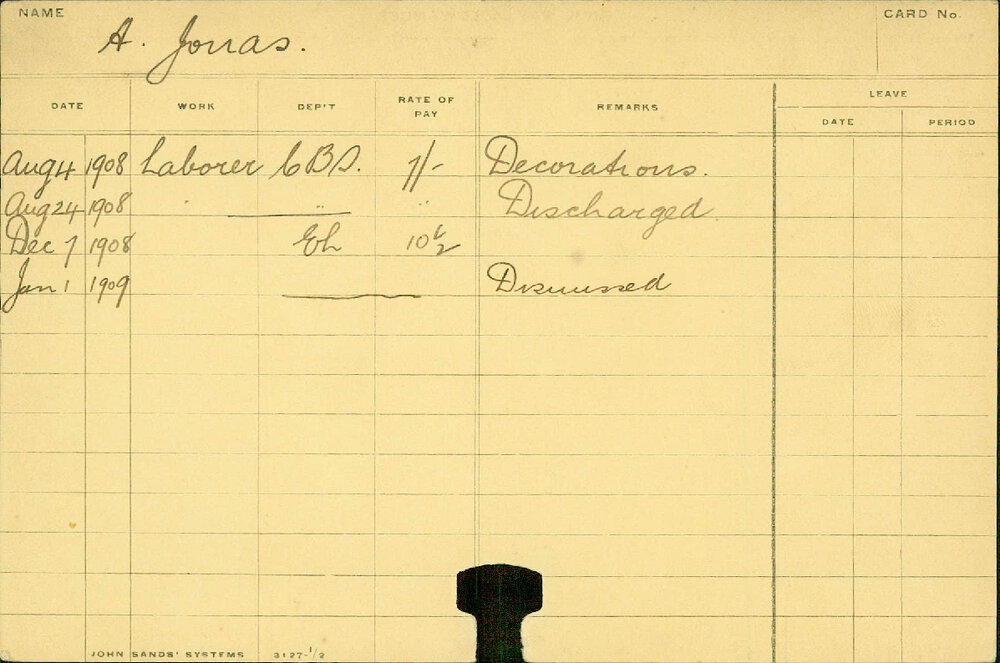 NAME CARD No.
A. Jonas.
DATE WORK DEP'T RATE OF PAY REMARKS LEAVE
DATE PERIOD
Aug 4 1908 Laborer C.B.S. 1/- Decorations.
Aug 24 1908 " Discharged
Dec 7 1908 10 1/2
Jan 1 1909 Dismissed
JOHN SANDS' SYSTEMS 3127-1/2